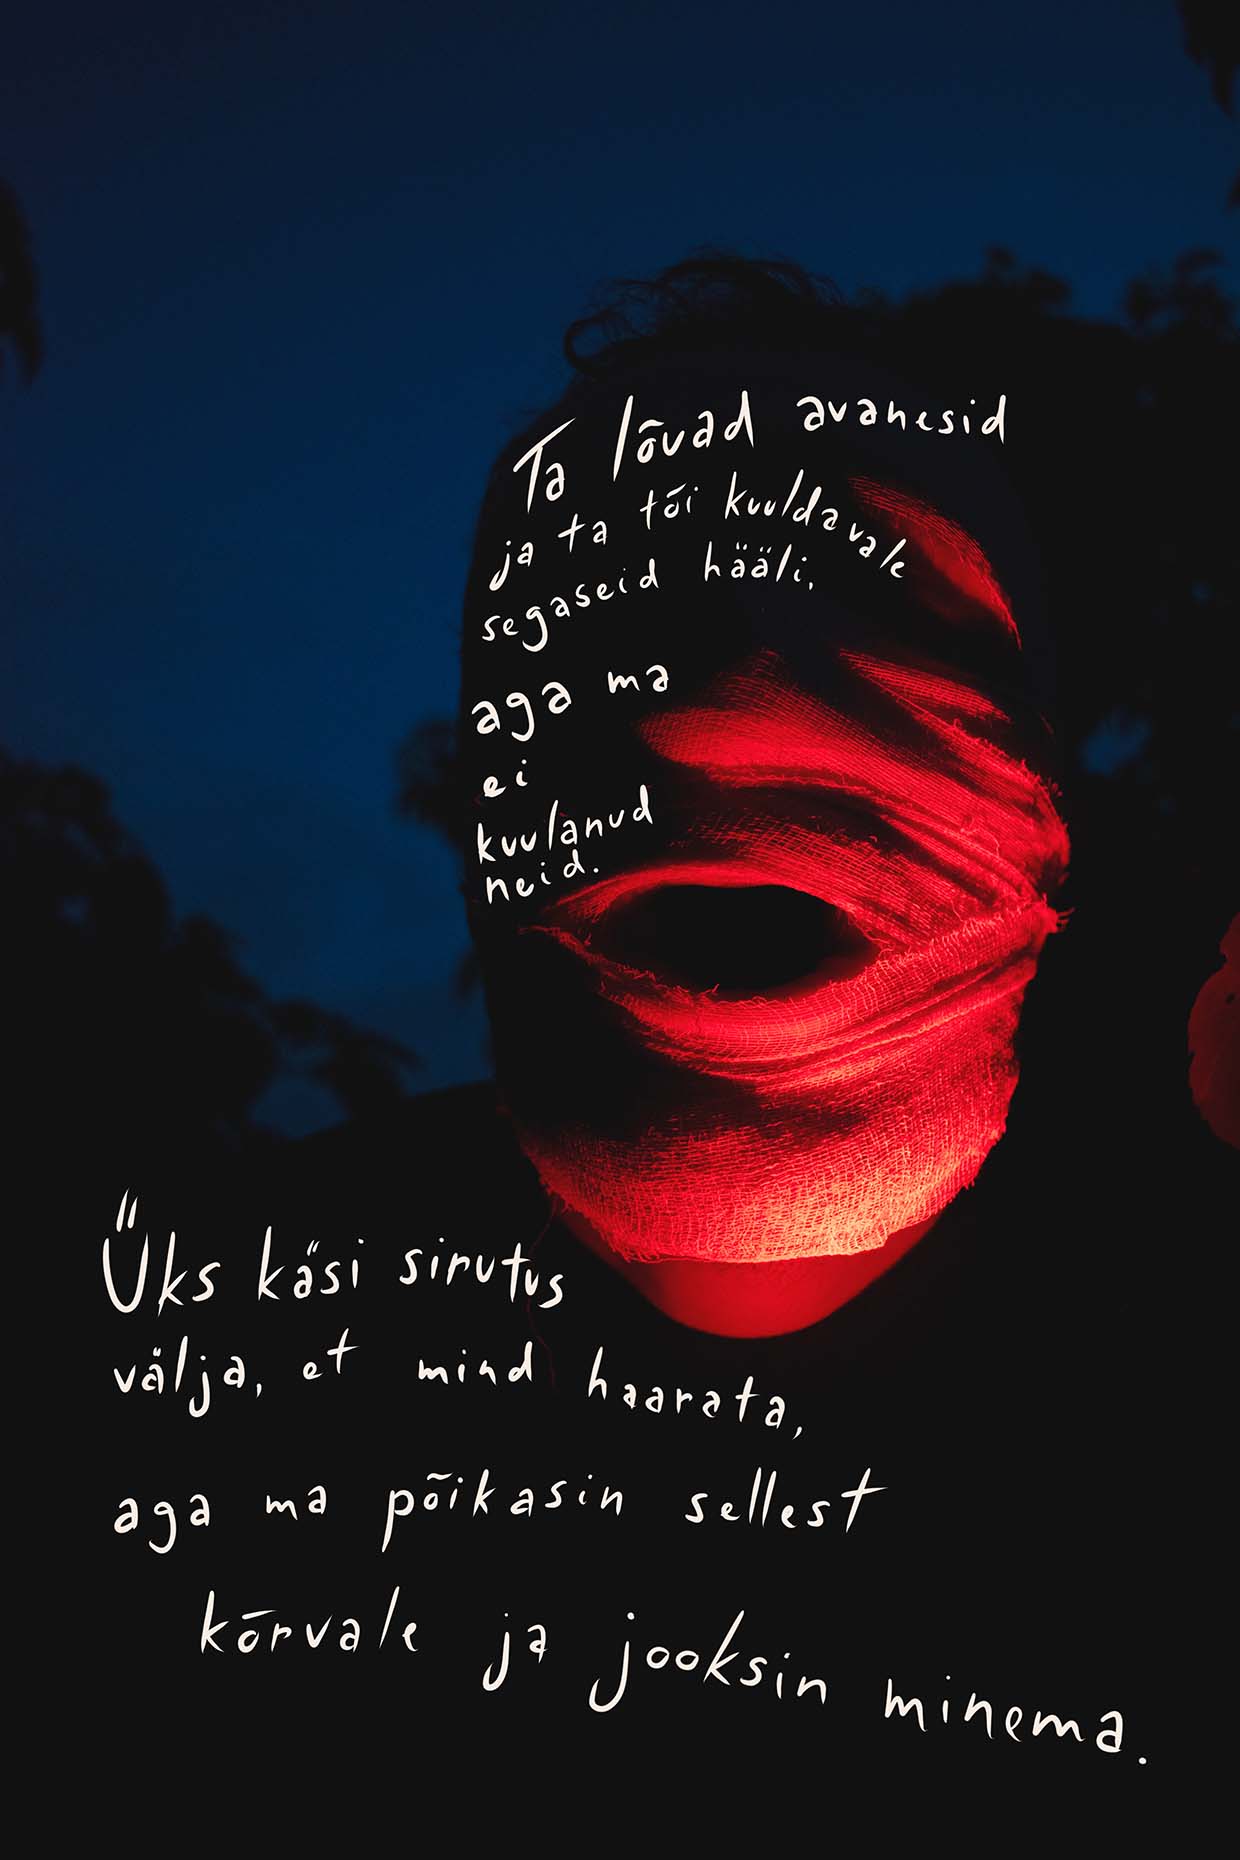 Ta lõvad avanesid
ja ta tõi kuuldavale
segaseid hääli,
aga ma
ei
kuulanud
neid.
Üks käsi sirutus
välja, et mind haarata,
aga ma põikasin sellest
kõrvale ja jooksin minema.